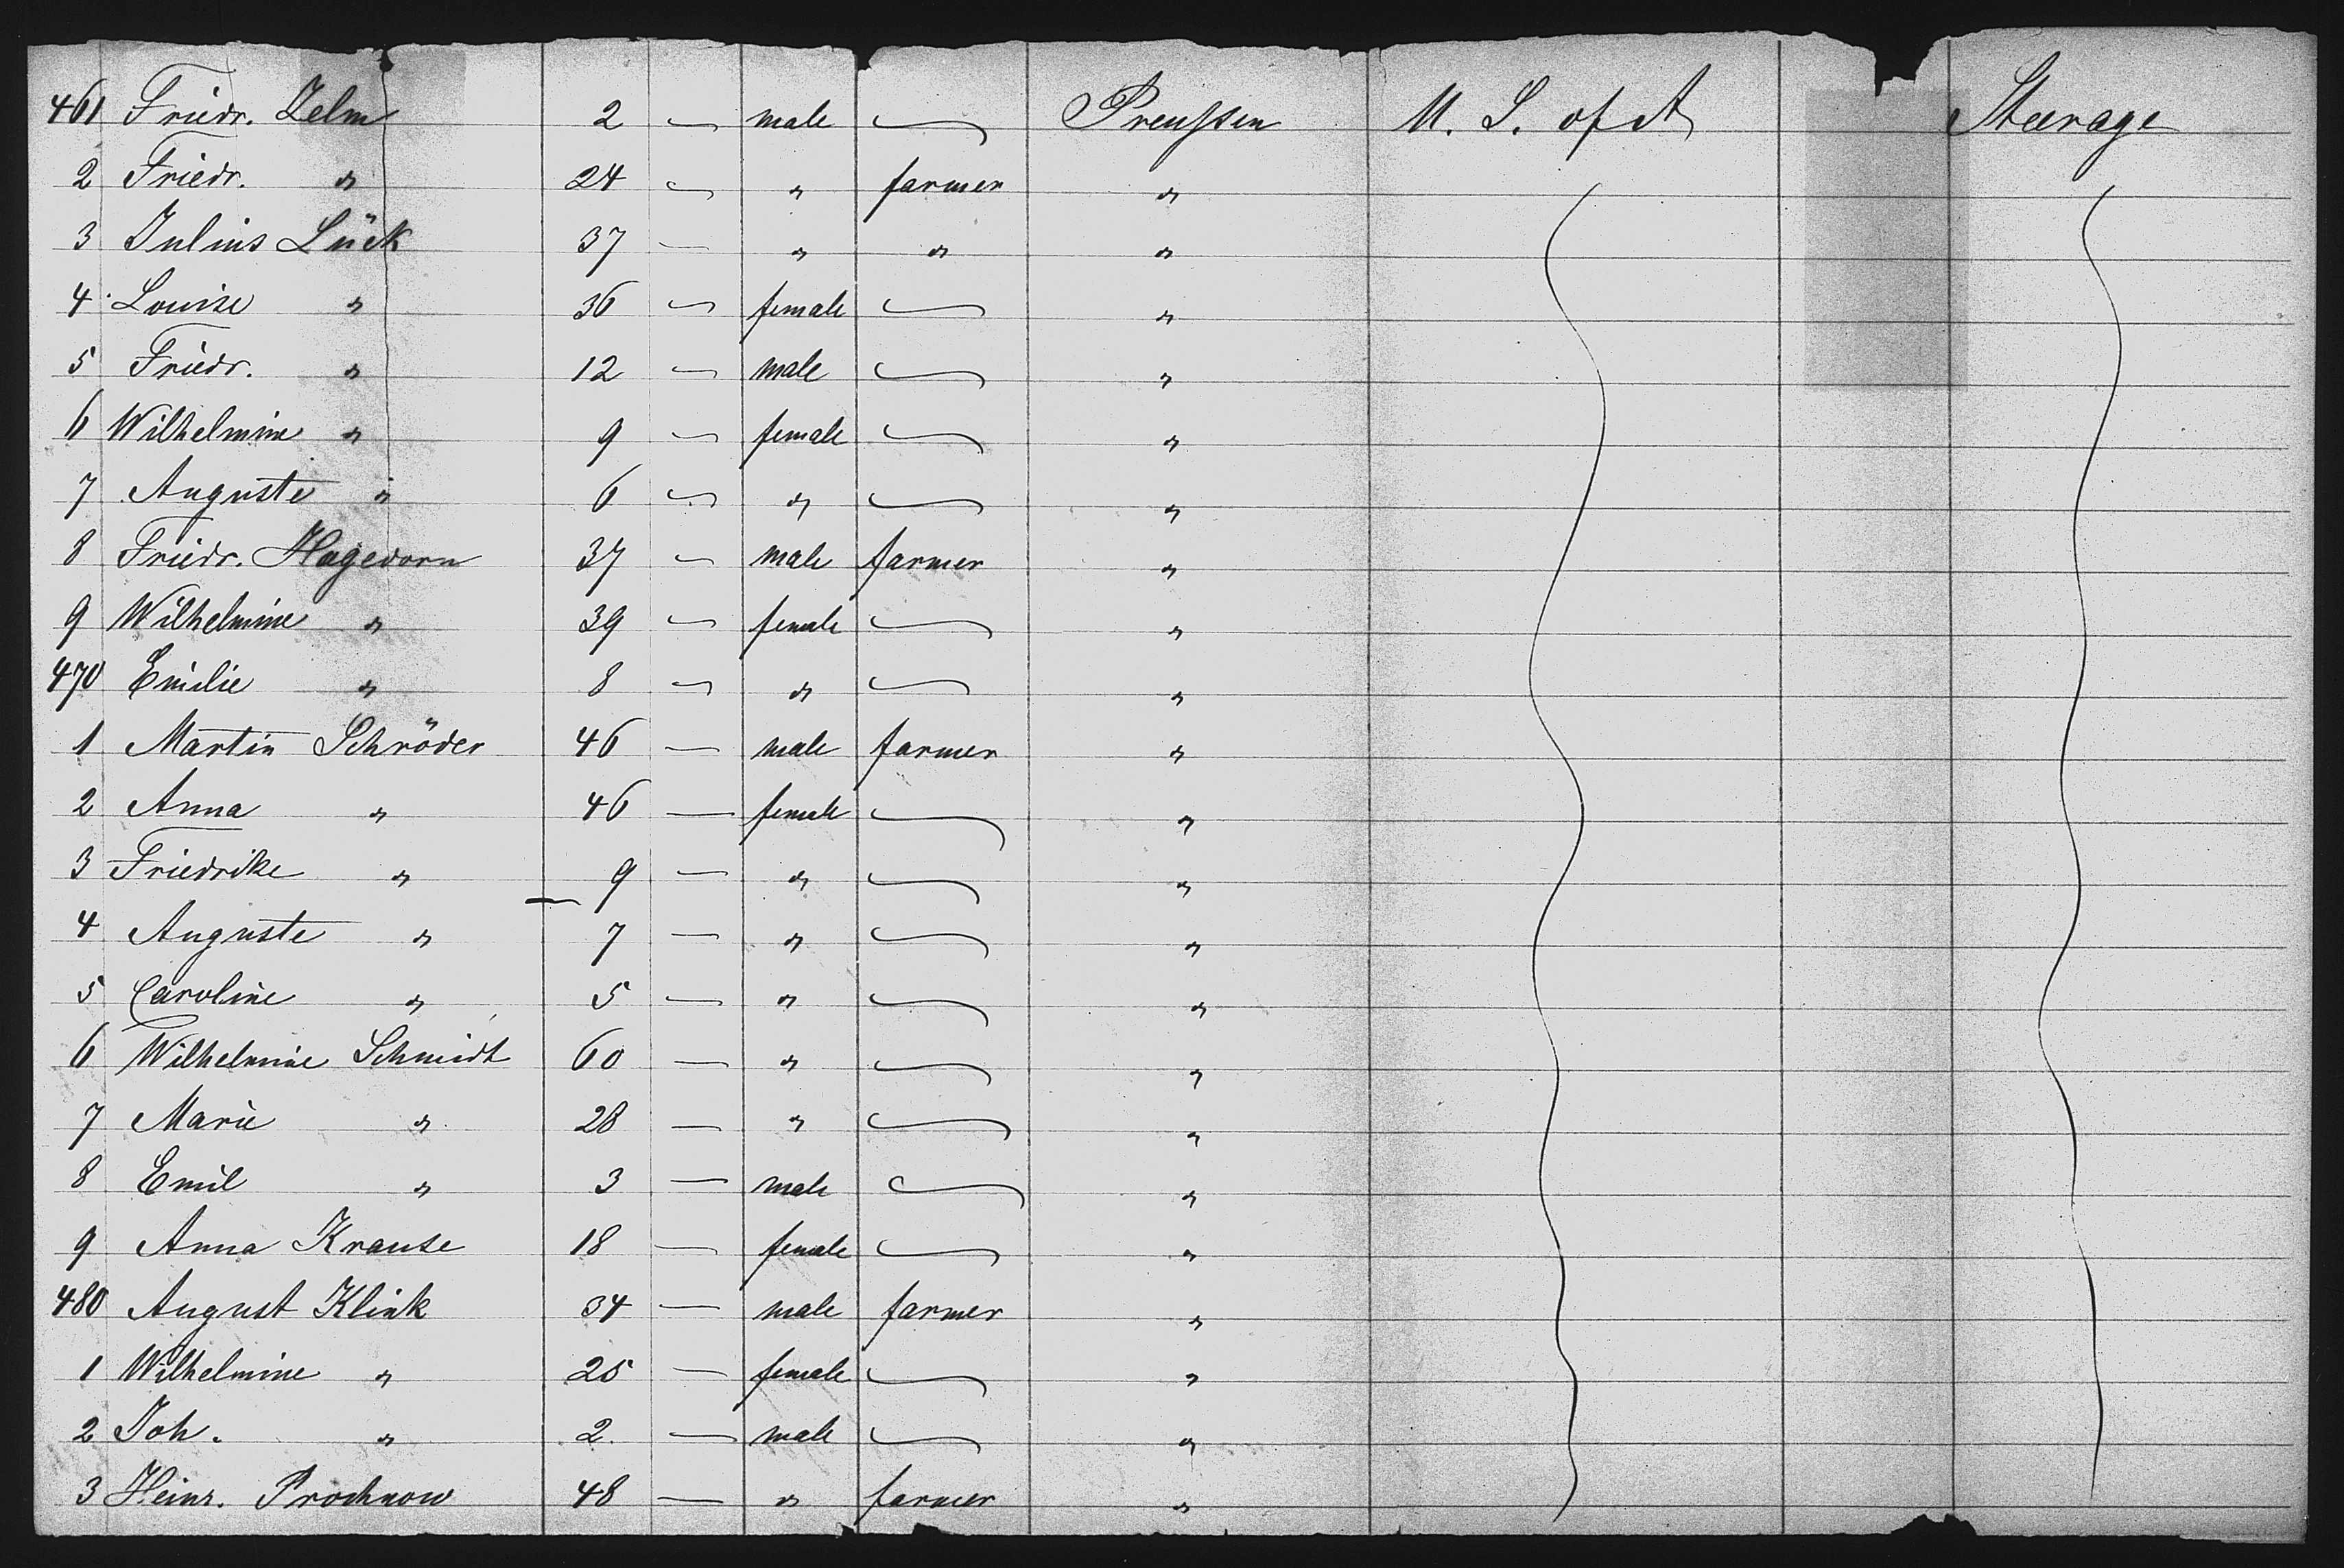 461 Friedr. Zelm 2 — male — Preußen U. S. of A Steerage
2 Friedr. " 24 — " farmer "
3 Julius Lück 37 — " " "
4 Louise " 36 — female — "
5 Friedr. " 12 — male — "
6 Wilhelmine " 9 — female — "
7 Auguste " 6 — " — "
8 Friedr. Hagedorn 37 — male farmer "
9 Wilhelmine " 39 — female — "
470 Emilie " 8 — " — "
1 Martin Schröder 46 — male farmer "
2 Anna " 46 — female — "
3 Friedrike " 9 — " — "
4 Auguste " 7 — " — "
5 Caroline " 5 — " — "
6 Wilhelmine Schmidt 60 — " — "
7 Marie " 28 — " — "
8 Emil " 3 — male — "
9 Anna Krause 18 — female — "
480 August Klink 34 — male farmer "
1 Wilhelmine " 25 — female — "
2 Joh. " 2 — male — "
3 Heinr. Prochnow 48 — " farmer "